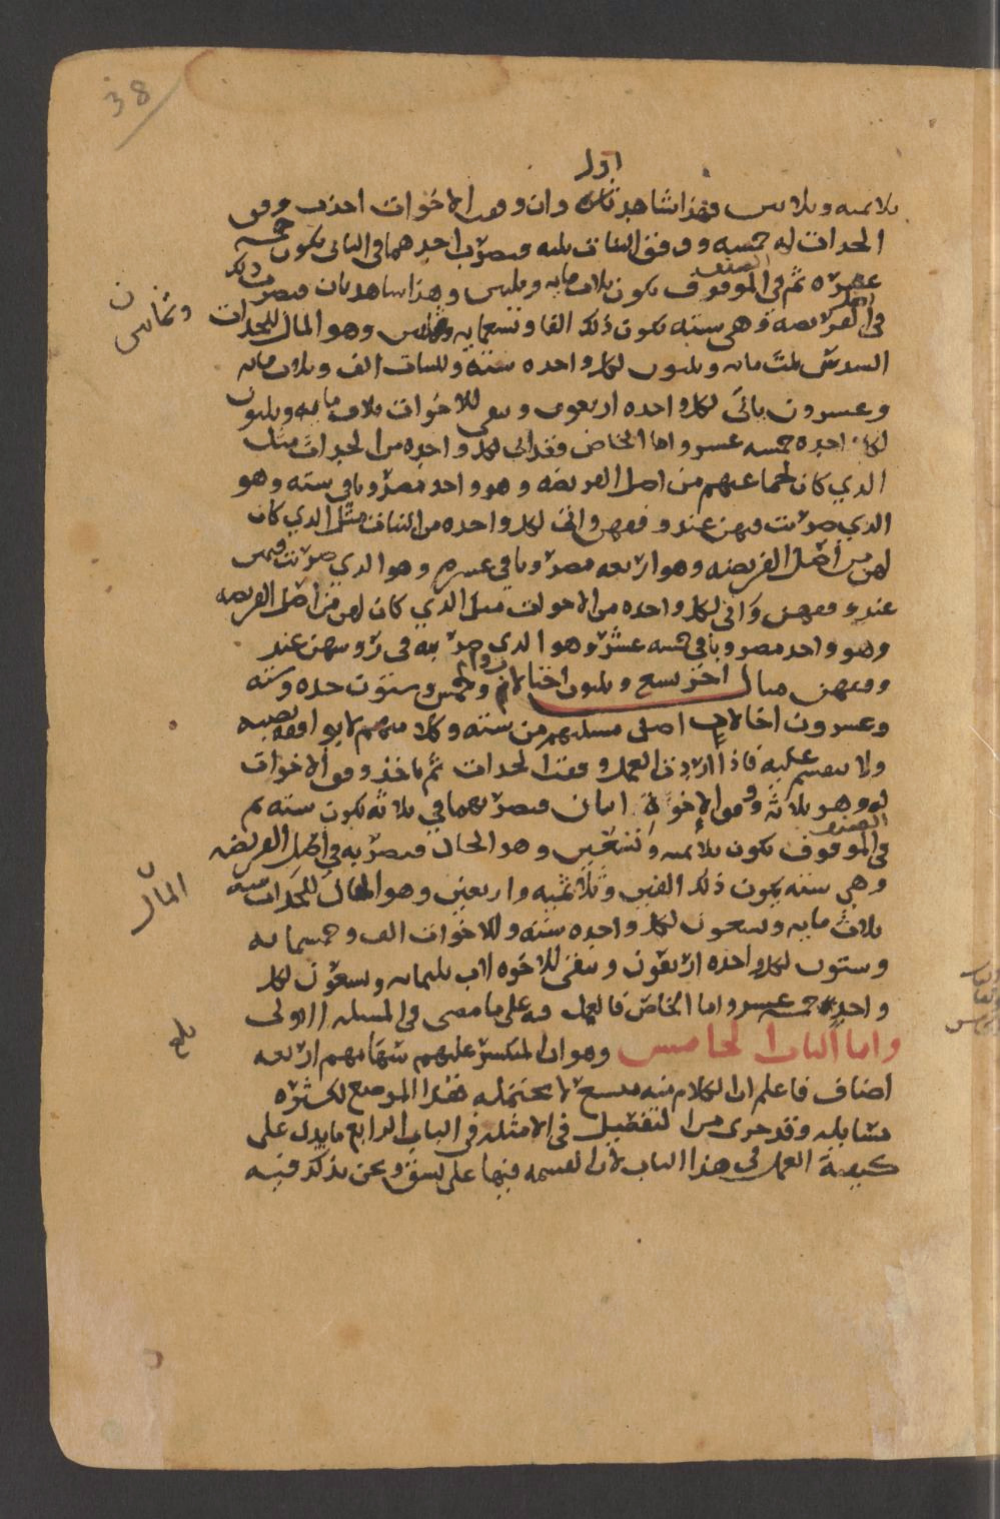 38
اول
ثلاثمية وثلاثين فهذا شاهد ثان وان وفق الاخوات اخذت وفق
الجدات له خمسه ووفق البنات مثليه فتضرب احدهما في الثاني يكون خمسه
عشره ثم في الصنف الموقوف يكون ثلاث مايه وثلثين وهذا شاهد ثان فتضرب ذلك
في اصل الفريضه وهي سته يكون ذلك الفا وتسعمايه وثمانين وهو المال للجدات
وثمانين ن
السدس ثلث مايه وثلثون لكل واحده سته وللبنات الف وثلاث مايه
وعشرون ياتي لكل واحده اربعون وبقي للاخوات ثلاث مايه وثلثون
لكل واحده خمسه عشر واما الخاص فقدان لكل واحده من الجدات مثل
الذي كان لجماعتهم من اصل الفريضه وهو واحد مضروبا في سته وهو
الذي ضربت فيهن عند وفقهن واتى لكل واحده من البنات مثل الذي كان
لهن من اصل الفريضه وهو اربعه مضروبا في عشره وهو الذي ضربت فيهن
عند وفقهن واتى لكل واحده من الاخوات مثل الذي كان لهن من اصل الفريضه
وهو واحد مضروبا في خمسه عشر وهو الذي ضربته في رؤوسهن عند
وفقهن مثال اخر تسع وثلثون اختا لام وخمس وستون جده وسته
وعشرون اخا لاب اصل مسئلتهم من سته وكلا منهم لا يوافقه نصيبه
ولا ينقسم عليه فاذا اردت العمل وقفت الجدات ثم تاخذ وفق الاخوات
له وهو ثلاثه ووفق الاخوة اثنان فتضربهما في ثلاثه يكون سته ثم
في الصنف الموقوف يكون ثلاثمية وتسعين وهو الحال فتضربه في اصل الفريضه
وهي سته يكون ذلك الفين وثلاثميه واربعين وهو المال للجدات منه
المال
ثلاث مايه وتسعون لكل واحده سته وللاخوات الف وخمسمايه
وستون لكل واحده اربعون وبقي للاخوه لاب ثلثمايه وتسعون لكل
واحد خمسه عشر واما الخاص فالعمل فيه على ما مضى في المسئله الاولى
واما الباب الخامس وهو ان المنكسر عليهم سهامهم اربعه
بلغ
اصناف فاعلم ان الكلام فيه متسع لا يحتمله هذا الموضع لكثره
مسايله وقد جرى من التفصيل في الامثله في الباب الرابع ما يدل على
كيفية العمل في هذا الباب لان القسمه فيها على نسق ونحن نذكر فيه